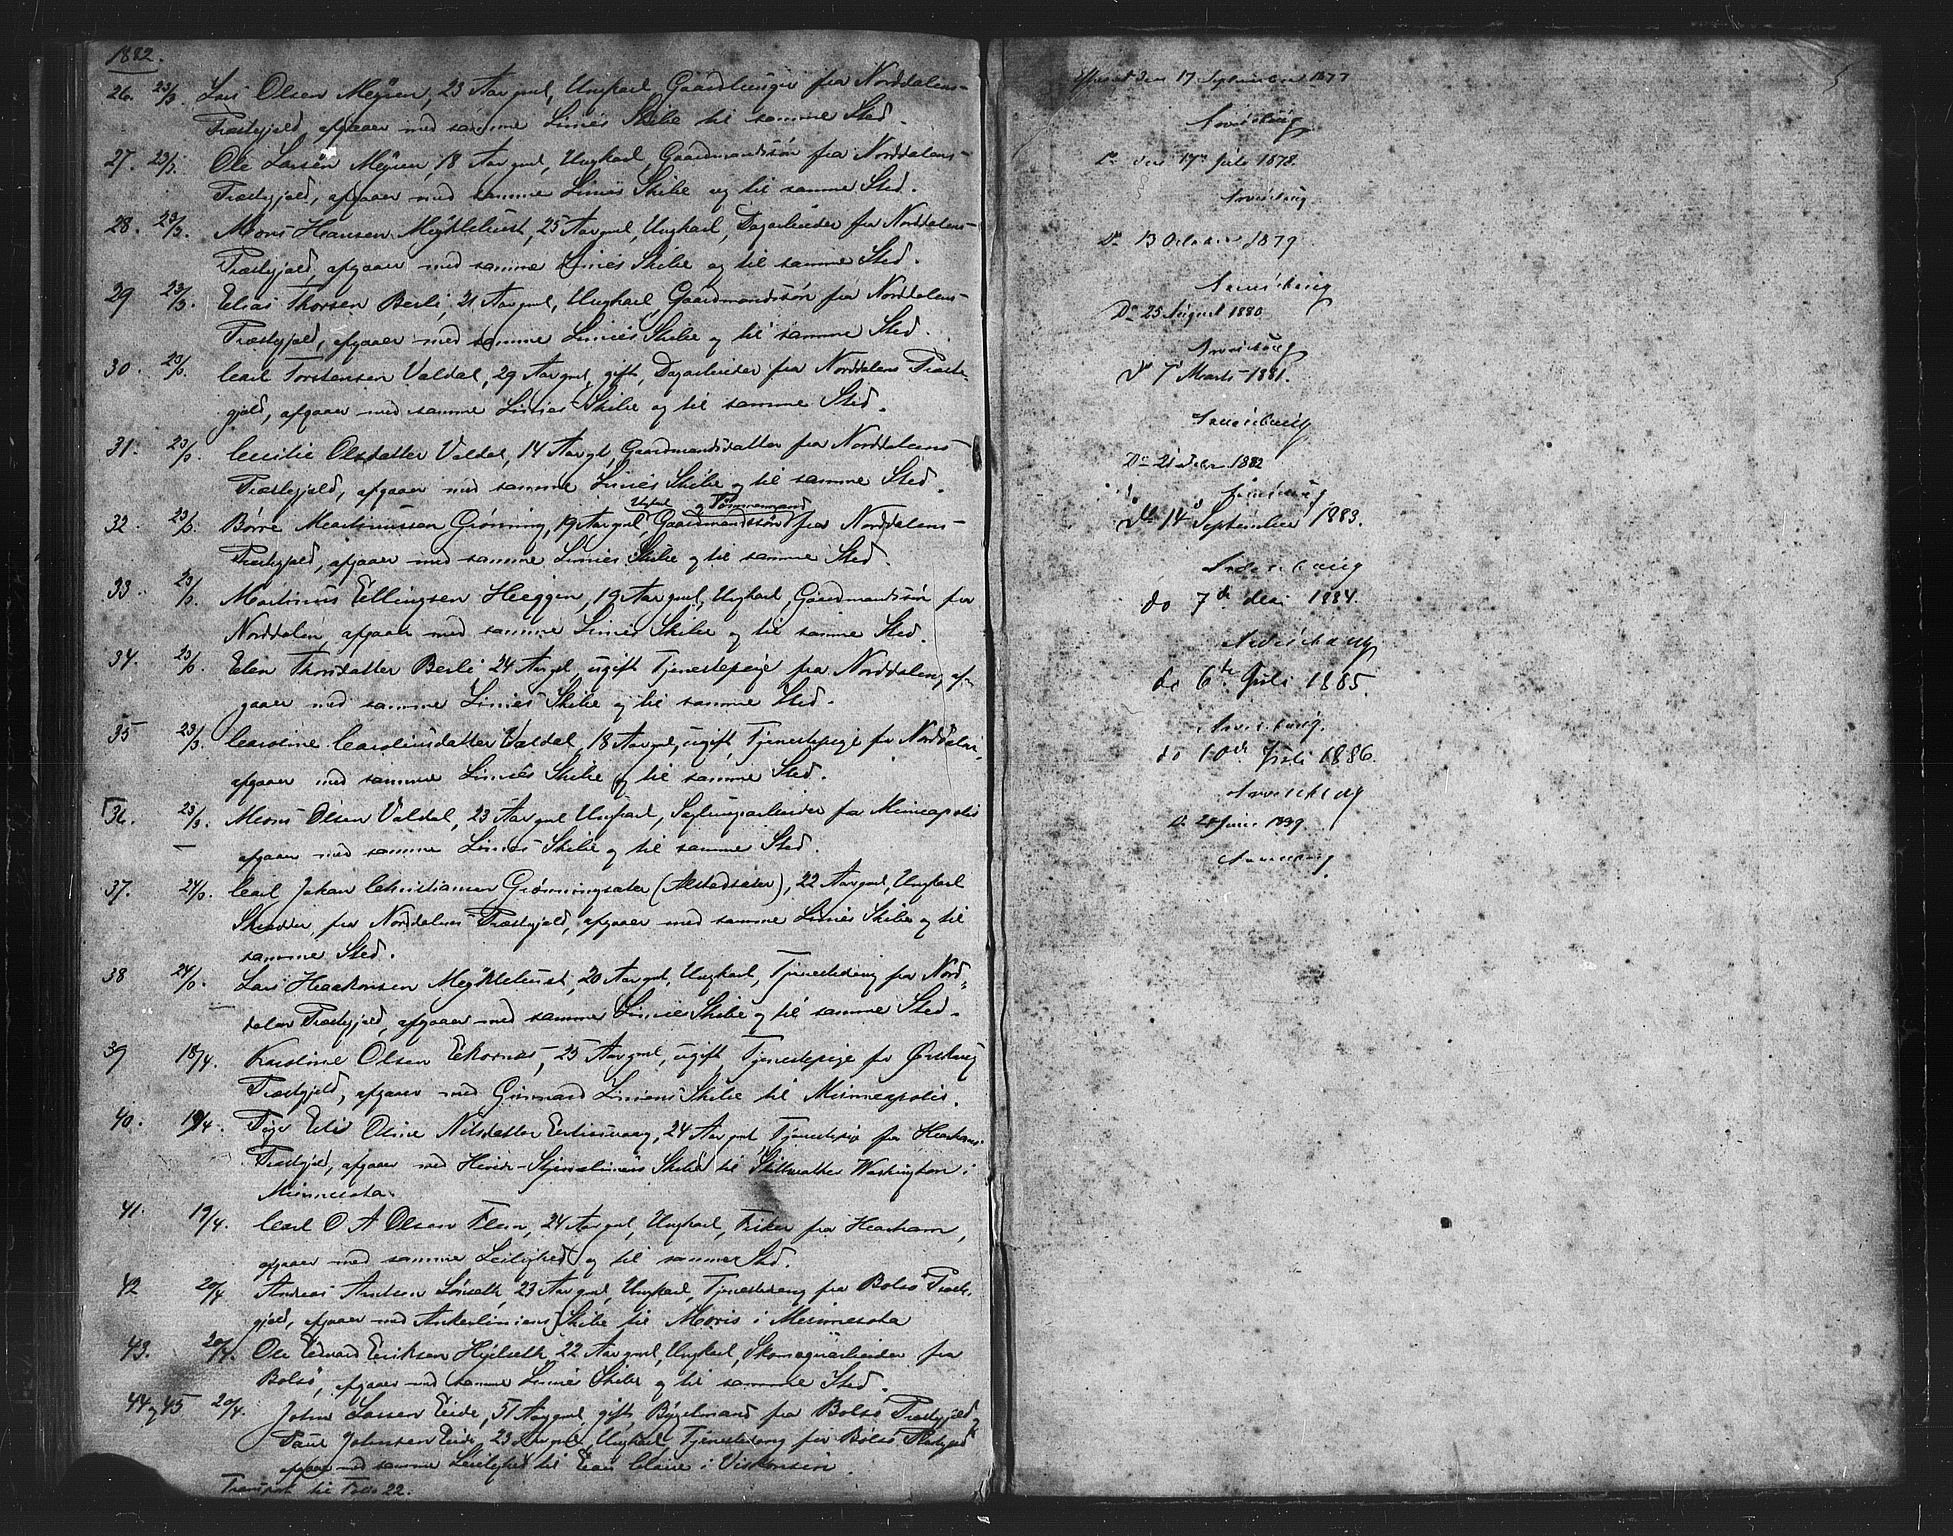 1882.
26. 23/3. Lars Olsen Meyren, 23 Aar gml, Ungkarl, fra Norddalens-
Præstegjeld, afgaaer med samme Linies Skibe til samme Sted.
27. 23/3. Ole Larsen Meyren, 18 Aar gml, Ungkarl, Gaardmandssøn fra Norddalens-
Præstegjeld, afgaaer med samme Linies Skibe og til samme Sted.
28. 23/3. Mons Hansen Myklebust, 25 Aar gml, Ungkarl, Dagarbeider fra Norddalens-
Præstegjeld, afgaaer med samme Linies Skibe og til samme Sted.
29 23/3. Elias Thorsen Berli, 21 Aar gml, Ungkarl, Gaardmandssøn fra Norddalens-
Præstegjeld, afgaaer med samme Linies Skibe og til samme Sted.
30. 23/3. Carl Torstensen Valdal, 29 Aar gml, gift, Dagarbeider fra Norddalens Præste-
gjeld, afgaaer med samme Linies Skibe og til samme Sted.
31. 23/3. Cecilie Olsdatter Valdal, 14 Aar gl, Gaardmandsdatter fra Norddalens-
Præstegjeld, afgaaer med samme Linies Skibe og til samme Sted.
Ungkarl og Tømmermand
32. 23/3. Børre Martinussen Grønning, 19 Aar gml, Gaardmandssøn fra Norddalens-
Præstegjeld, afgaaer med samme Linies Skibe og til samme Sted.
33. 23/3. Martinus Ellingsen Heggen, 19 Aar gml, Ungkarl, Gaardmandssøn fra
Norddalen, afgaaer med samme Linies Skibe og til samme Sted.
34. 23/3. Elen Thorsdatter Berli 24 Aar gml, ugift Tjenestepige fra Norddalen, af-
gaaer med samme Linies Skibe og til samme Sted.
35 23/3. Caroline Carolinusdatter Valdal, 18 Aar gml, ugift, Tjenestepige fra Norddalen,
afgaaer med samme Linies Skibe og til samme Sted.
36. 23/3. Mons Olsen Valdal, 23 Aar gml Ungkarl, Sagbrugsarbeider fra Minneapolis
afgaaer med samme Linies Skibe og til samme Sted.
37. 24/3. Carl Johan Christiansen Grønningsæter (Alstadsæter), 22 Aar gml, Ungkarl
Skrædder, fra Norddalens Præstegjeld, afgaaer med samme Linies Skibe og til
samme Sted.
38 24/3. Lars Haakonsen Myklebust, 20 Aar gml, Ungkarl, Tjenestedreng fra Nord-
dalens Præstegjeld, afgaaer med samme Linies Skibe og til samme Sted.
39 18/4. Karoline Olsen Ekornæs, 25 Aar gml, ugift, Tjenestepige fra Ørskoug
Præstegjeld, afgaaer med Liniens Skibe til Minneapolis.
40. 19/4. Pige Eli Oline Nilsdatter 24 Aar gml Tjenestepige fra Harhams-
Præstegjeld, afgaaer med Skibe til Stillwatter Washington i
Minnesota.
41. 19/4. Carl O A Olsen Flem, 24 Aar gml, Ungkarl, Fisker fra Harham,
afgaaer med samme Leilighed og til samme Sted.
42 20/4 Andreas Sønseth, 23 Aar gml, Ungkarl, Tjenestedreng fra Bolsø Præste-
gjeld, afgaaer med Ankerliniens Skibe til Moris i Minnesota
43. 20/4. Ole Edvard Eriksen Hjelseth, 22 Aar gml, Ungkarl, Skomagerarbeider fra
Bolsø, afgaaer med samme Linies Skibe og til samme Sted.
44 og 45 20/4. John Larsen Eide, 57 Aar gml, gift, Bygselmand fra Bolsø Præstegjeld og
Paul Johnsen Eide, 23 Aar gml, Ungkarl, Tjenestedreng fra Bolsø Præstegjeld
afgaaer med samme Leilighed til Eau Claire i Viskonsin.
Transport til Folio 22.
den 17 September 1877
Do den 17de Juli 1878.
Do 13 October 1879
Do 25 August 1880
Do 7 Marts 1881.
Do 21 1882
Do 14d September 1883.
do 7de Mai 1884.
do 6te Juli 1885.
do 10de Juli 1886.
Do 1889.